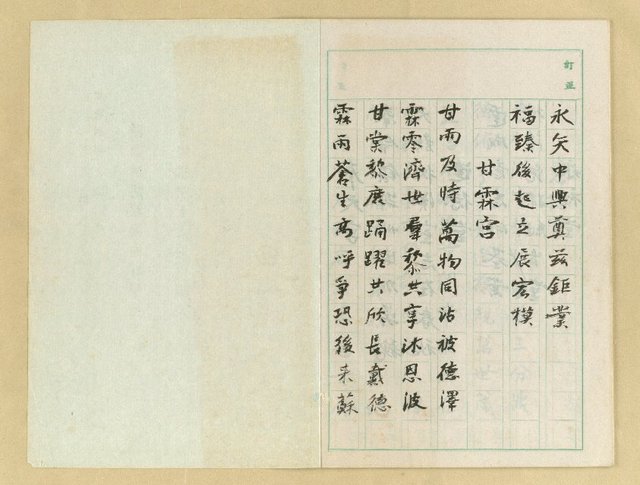 訂正
永矢中興奠茲鉅業
福臻後起立展宏模
甘霖宫
甘雨及時萬物同沾被德澤
霖零濟世羣黎共享沐恩波
甘棠黎庶踊躍共欣長戴德
霖雨蒼生高呼爭恐後来蘇